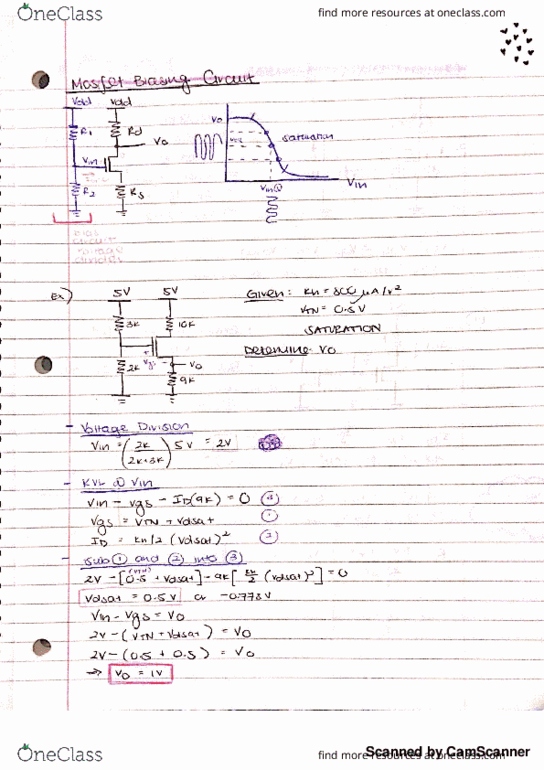 OneClass
find more resources at oneclass.com
Mosfet Biasing Circuit
Vdd Vdd
R1 Rd
Vo
Vin
R2 Rs
bias
circuit
voltage
divider
Vo
saturation
VinQ
Vin
Ex)
5V 5V
3k 10k
Vgs
Vo
2k 9k
Given: kn = 800 μA/V²
VTN = 0.5V
SATURATION
Determine Vo
- Voltage Division
Vin = (2k / 2k+3k) 5V = 2V
- KVL @ Vin
Vin - Vgs - ID(9k) = 0 ③
Vgs = VTN + Vdsat ①
ID = kn/2 (Vdsat)² ②
- Sub ① and ② into ③
2V - [0.5 + Vdsat] - 9k[kn/2 (Vdsat)²] = 0
Vdsat = 0.5V or -0.778V
Vin - Vgs = Vo
2V - (VTN + Vdsat) = Vo
2V - (0.5 + 0.5) = Vo
→ Vo = 1V
OneClass
find more resources at oneclass.com
Scanned by CamScanner